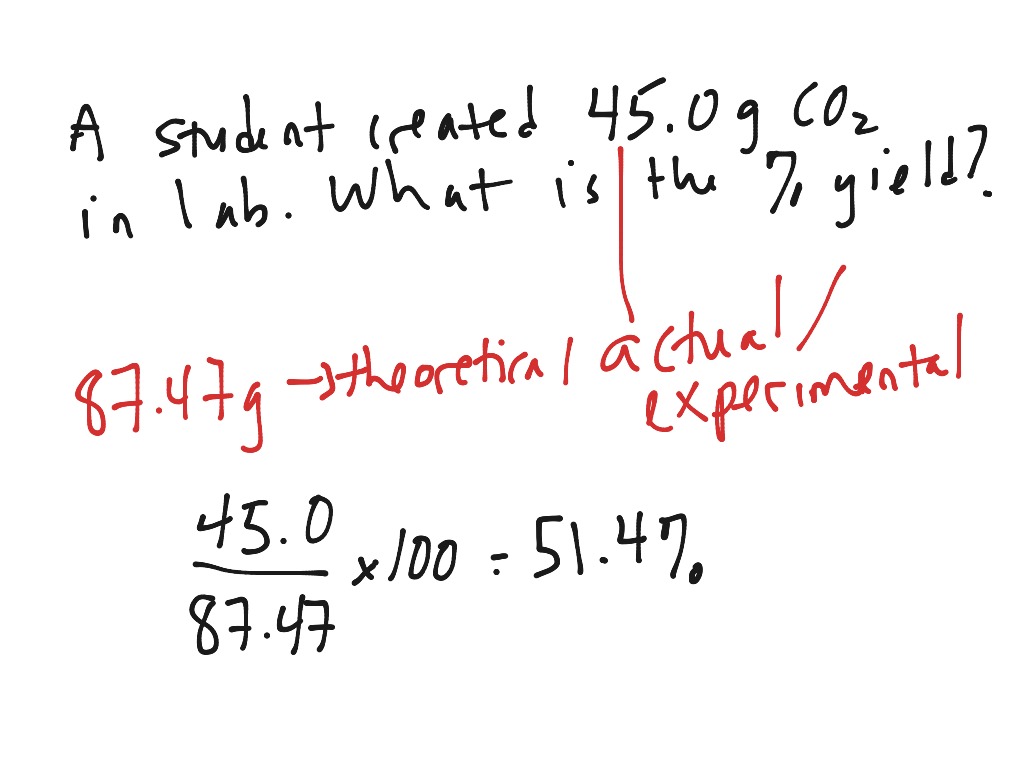 A student created 45.0 g CO₂
in lab. What is the % yield?
87.47g → theoretical actual /
experimental
45.0
87.47
x 100 = 51.4%